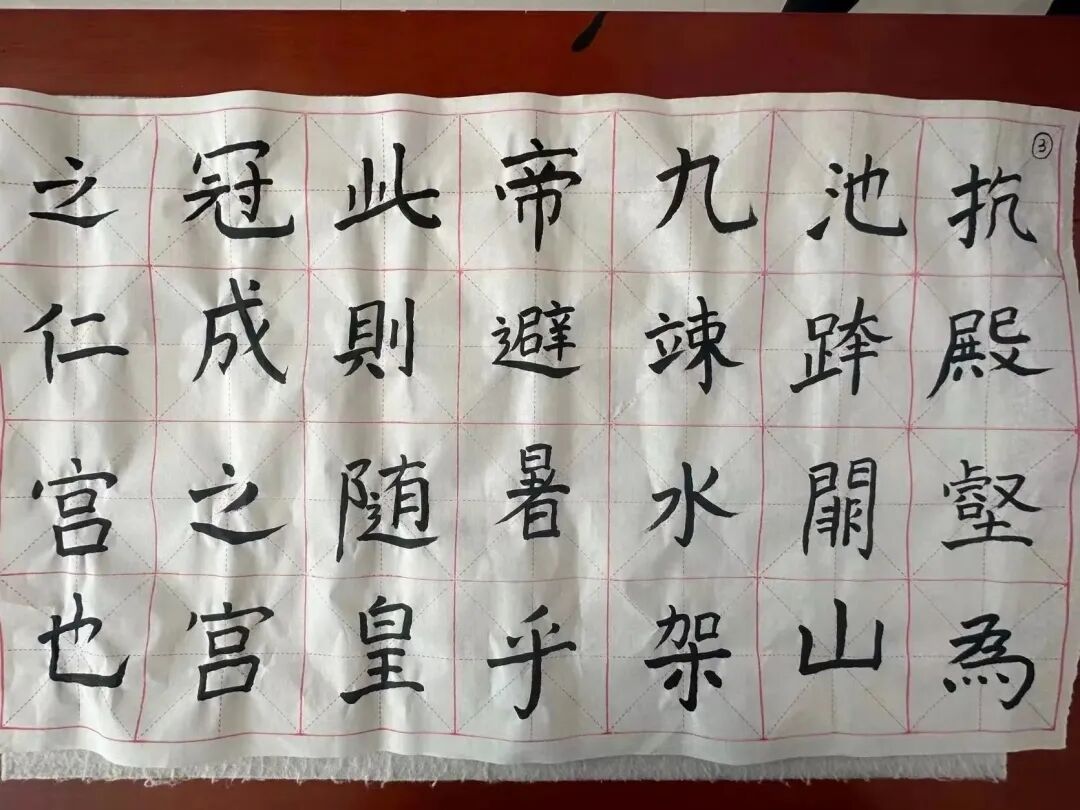 ③
抗殿壑為
池跨山
九竦水架
帝避暑乎
此則随皇
冠成之宫
之仁宫也